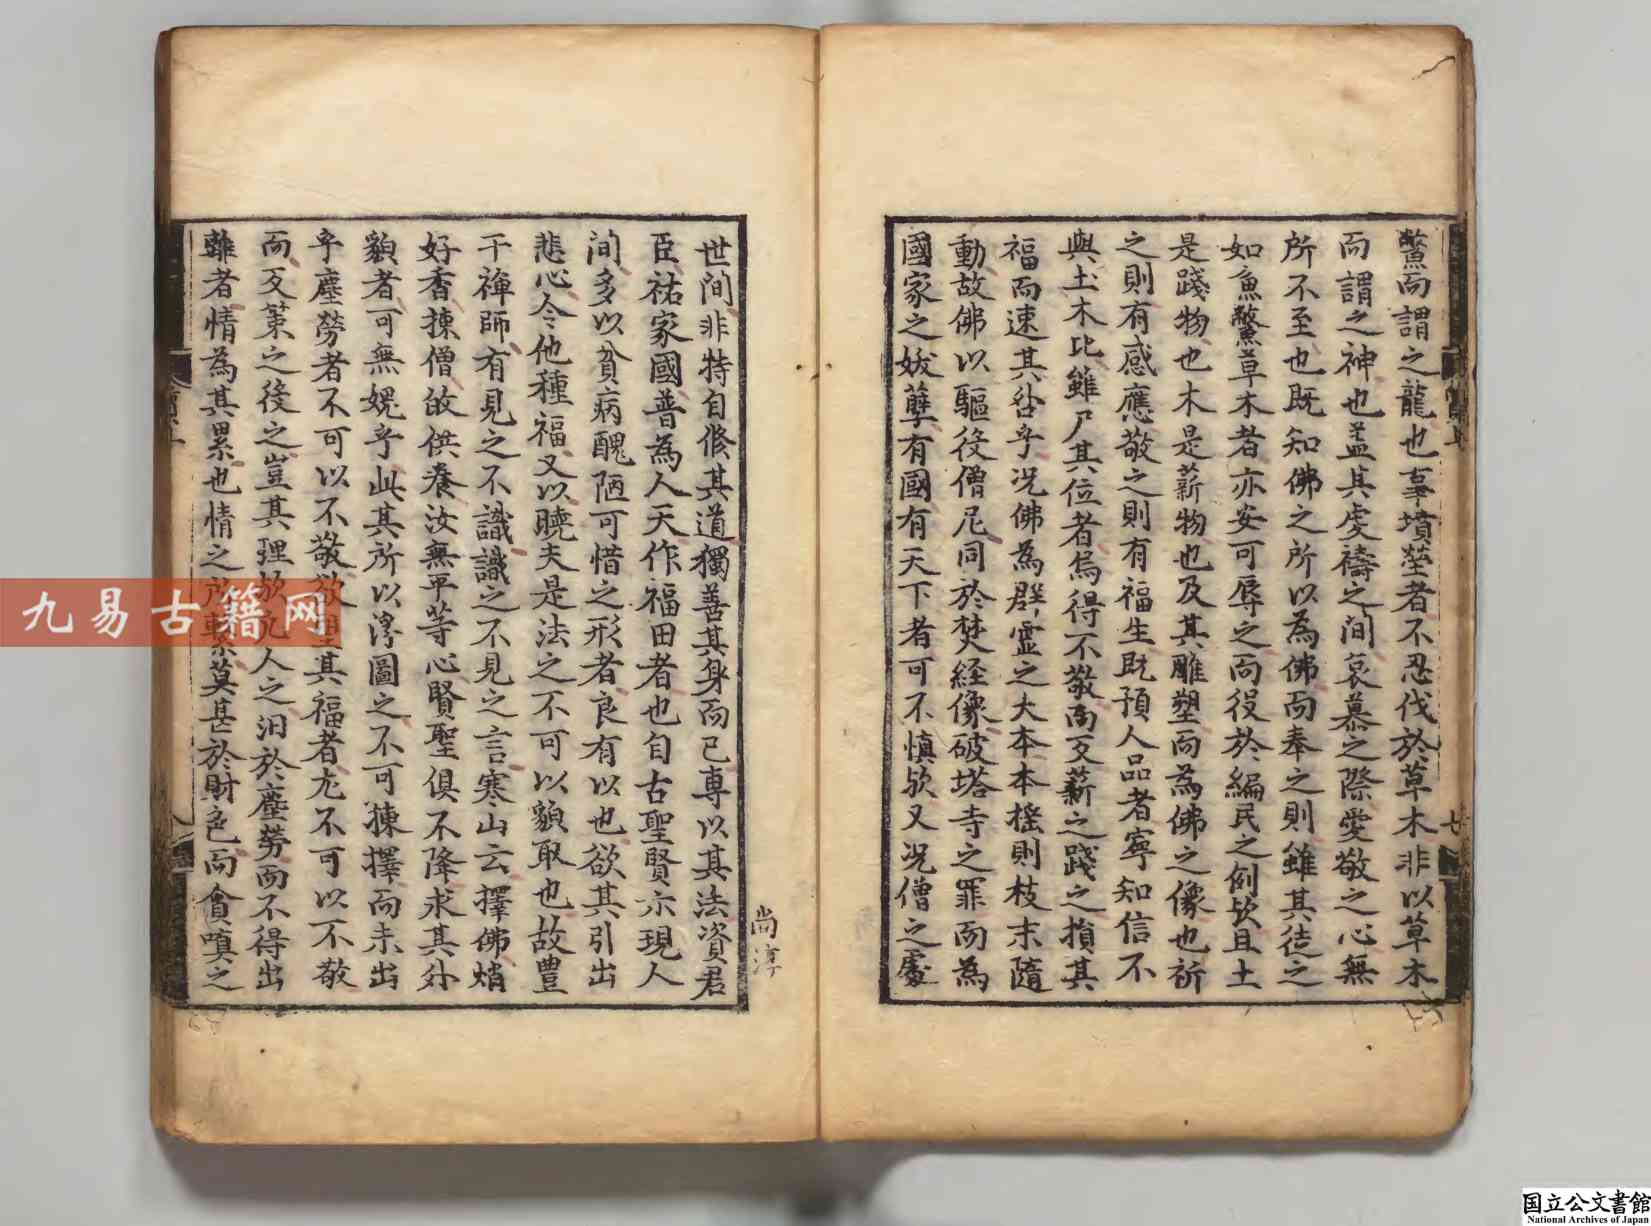 鱉而謂之龍也事墳塋者不忍伐於草木非以草木
而謂之神也盖其虔禱之間哀慕之際愛敬之心無
所不至也既知佛之所以為佛而奉之則雖其徒之
如魚鱉草木者亦安可辱之而役於編民之例欤且土
是踐物也木是薪物也及其雕塑而為佛之像也祈
之則有感應敬之則有福生既預人品者寧知信不
與土木比雖尸其位者烏得不敬而反薪之踐之損其
福而速其咎乎况佛為群靈之大本本揺則枝末隨
動故佛以驅役僧尼同於焚経像破塔寺之罪而為
國家之妖孽有國有天下者可不慎欤又况僧之處
世间非特自修其道獨善其身而已專以其法資君
臣祐家國普為人天作福田者也自古聖賢示現人
间多以貧病醜陋可惜之形者良有以也欲其引出
悲心令他種福又以曉夫是法之不可以貌取也故豊
干禅師有見之不識識之不見之言寒山云擇佛焼
好香揀僧敀供養汝無平等心賢聖俱不降求其外
貌者可無媿乎此其所以浮圖之不可揀擇而未出
乎塵勞者不可以不敬欲 其福者尤不可以不敬
而反䇿之後之豈其理欤 人之汨於塵勞而不得出
離者情為其累也情之所繫莫甚於財色而貪嗔之
尚淳
九易古籍网
国立公文書館
National Archives of Japan